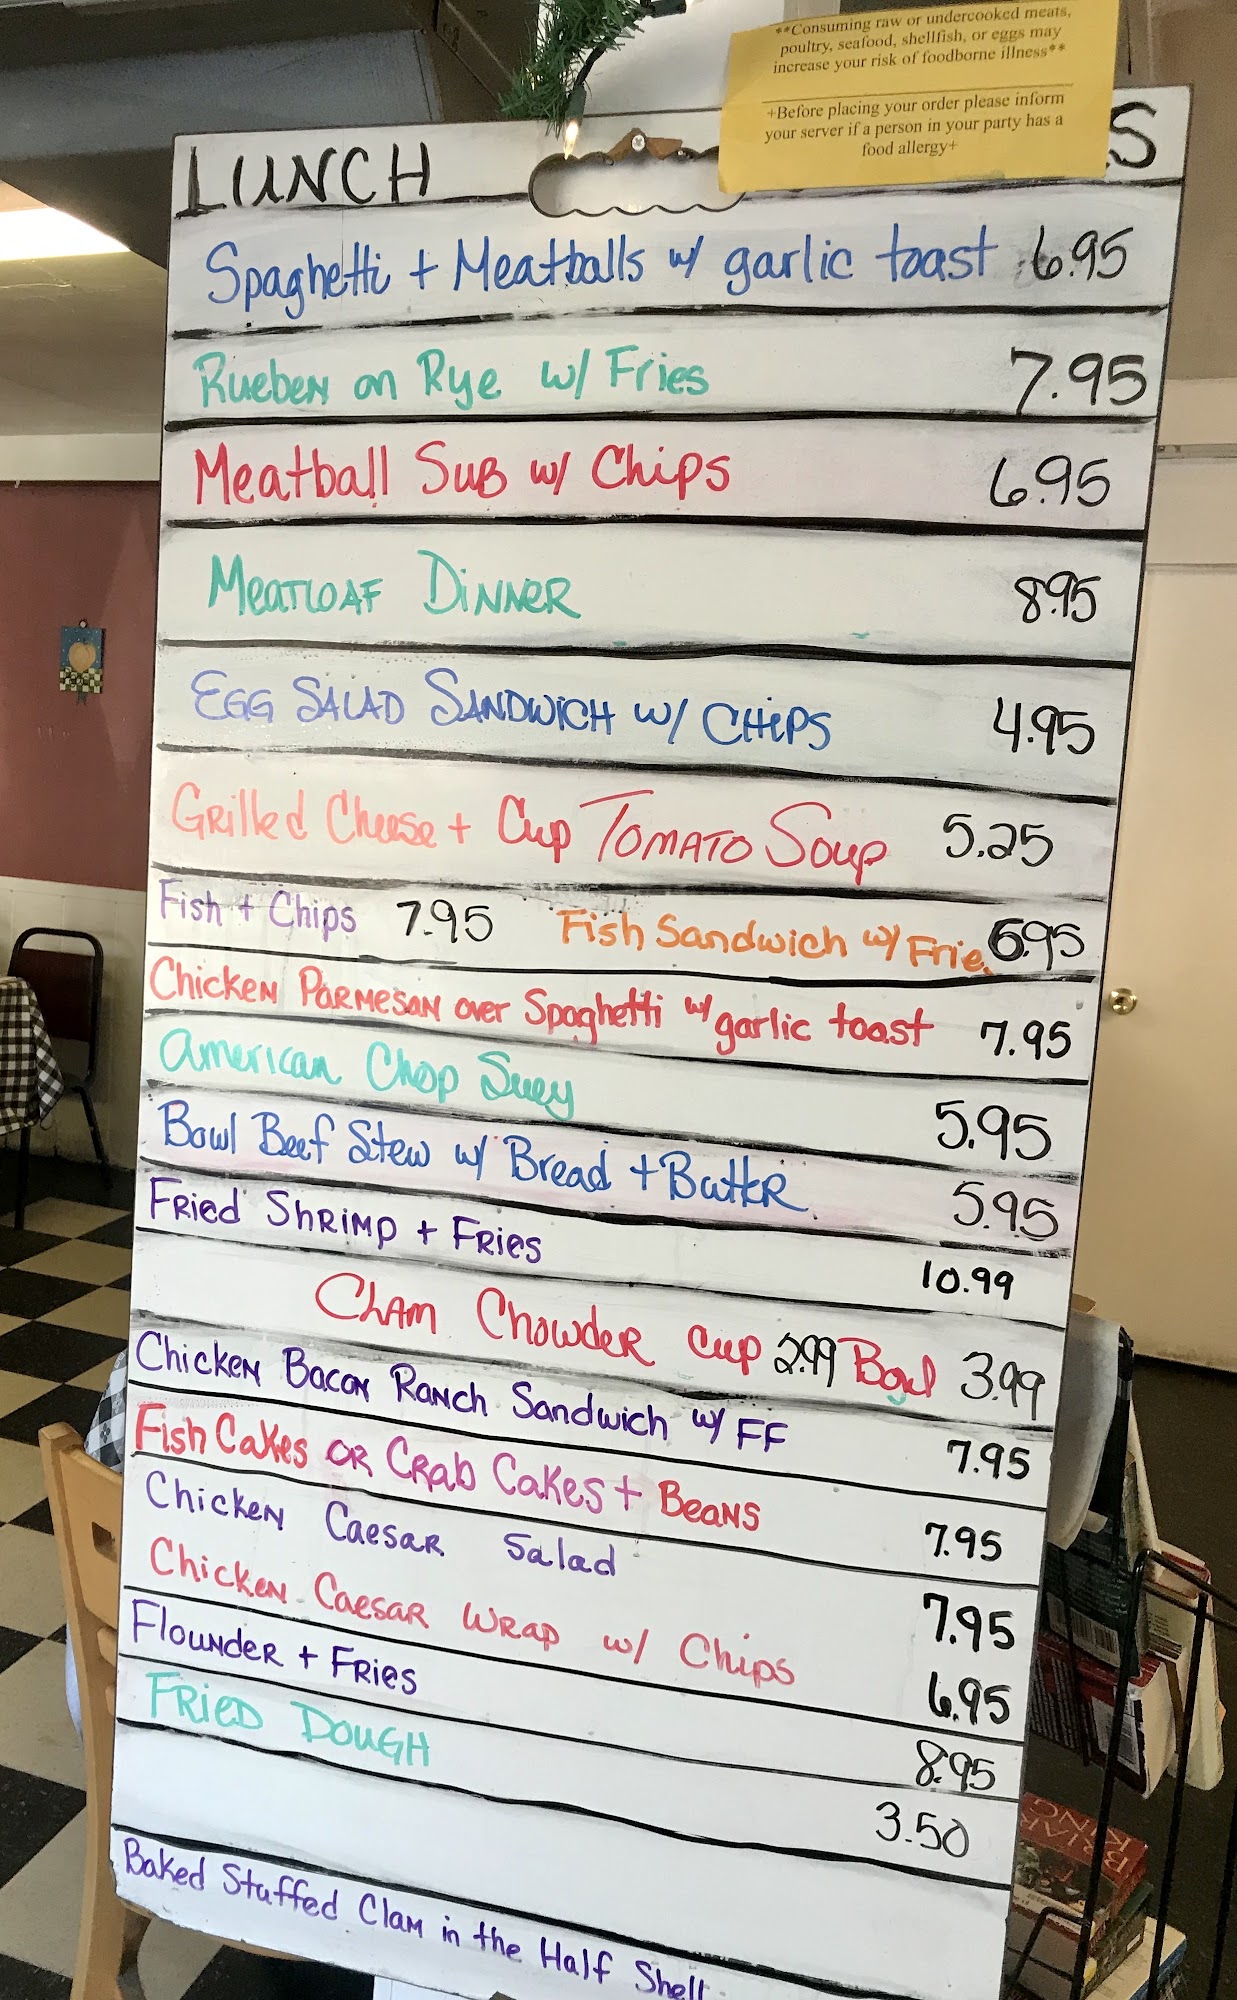 **Consuming raw or undercooked meats,
poultry, seafood, shellfish, or eggs may
increase your risk of foodborne illness**
+Before placing your order please inform
your server if a person in your party has a
food allergy+
LUNCH S
Spaghetti + Meatballs w/ garlic toast 6.95
Rueben on Rye w/ Fries 7.95
Meatball Sub w/ Chips 6.95
Meatloaf Dinner 8.95
Egg Salad Sandwich w/ Chips 4.95
Grilled Cheese + Cup Tomato Soup 5.25
Fish + Chips 7.95 Fish Sandwich w/ Frie 6.95
Chicken Parmesan over Spaghetti w/ garlic toast 7.95
American Chop Suey 5.95
Bowl Beef Stew w/ Bread + Butter 5.95
Fried Shrimp + Fries 10.99
Clam Chowder Cup 2.99 Bowl 3.99
Chicken Bacon Ranch Sandwich w/ FF 7.95
Fish Cakes or Crab Cakes + Beans 7.95
Chicken Caesar Salad 7.95
Chicken Caesar Wrap w/ Chips 6.95
Flounder + Fries 8.95
Fried Dough 3.50
Baked Stuffed Clam in the Half Shell
BRIAN
KING